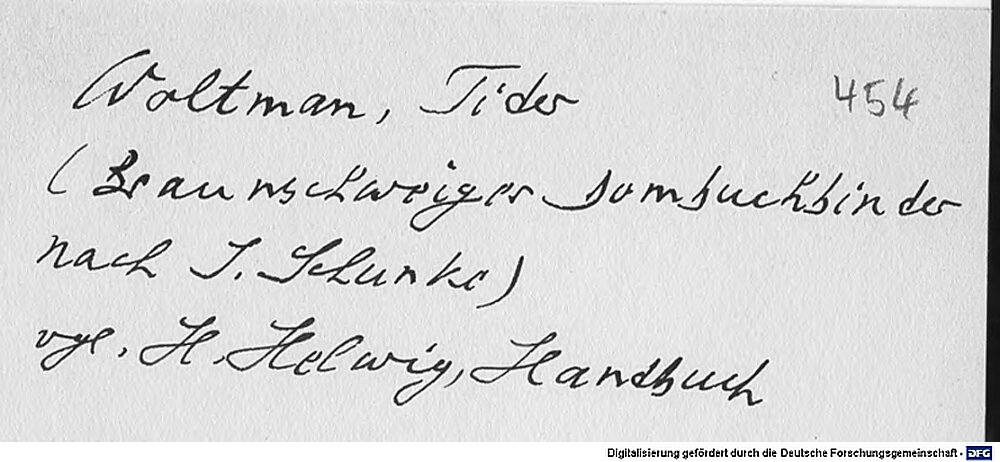 Woltman, Tider 454
(Braunschweiger Dombuchbinder
nach I. Schunke)
vgl. H. Helwig, Handbuch
Digitalisierung gefördert durch die Deutsche Forschungsgemeinschaft - DFG